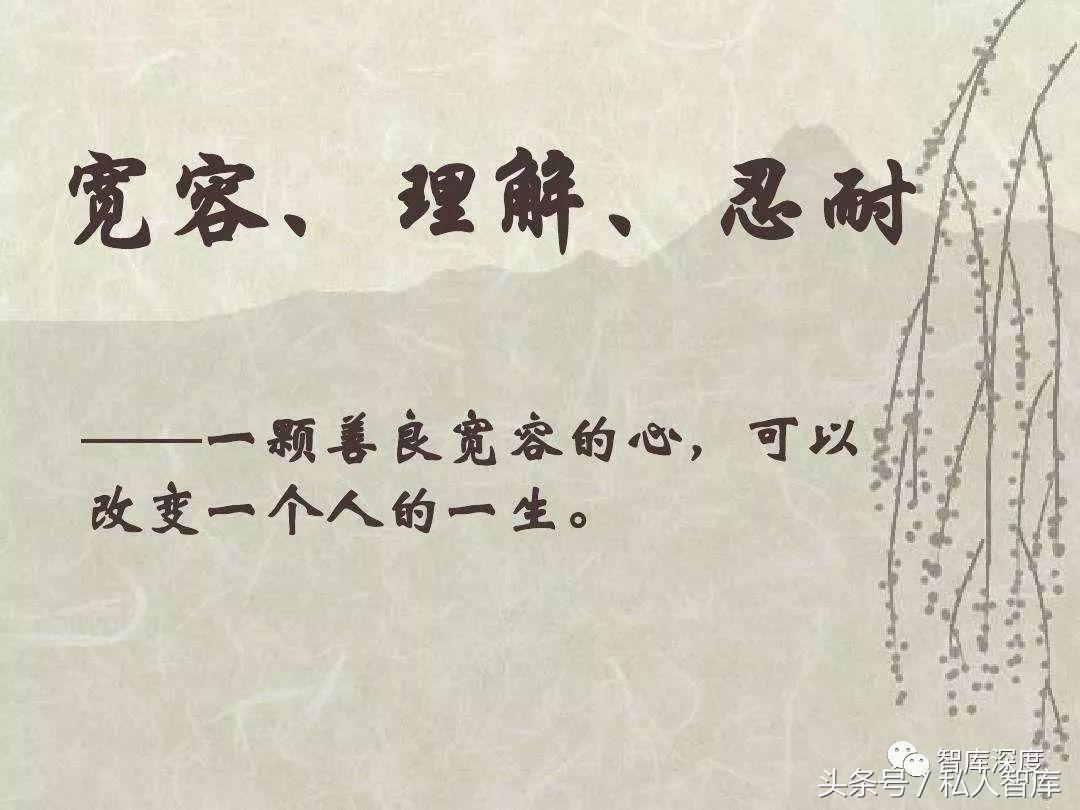 宽容、理解、忍耐
——一颗善良宽容的心，可以
改变一个人的一生。
智库深度
头条号 / 私人智库